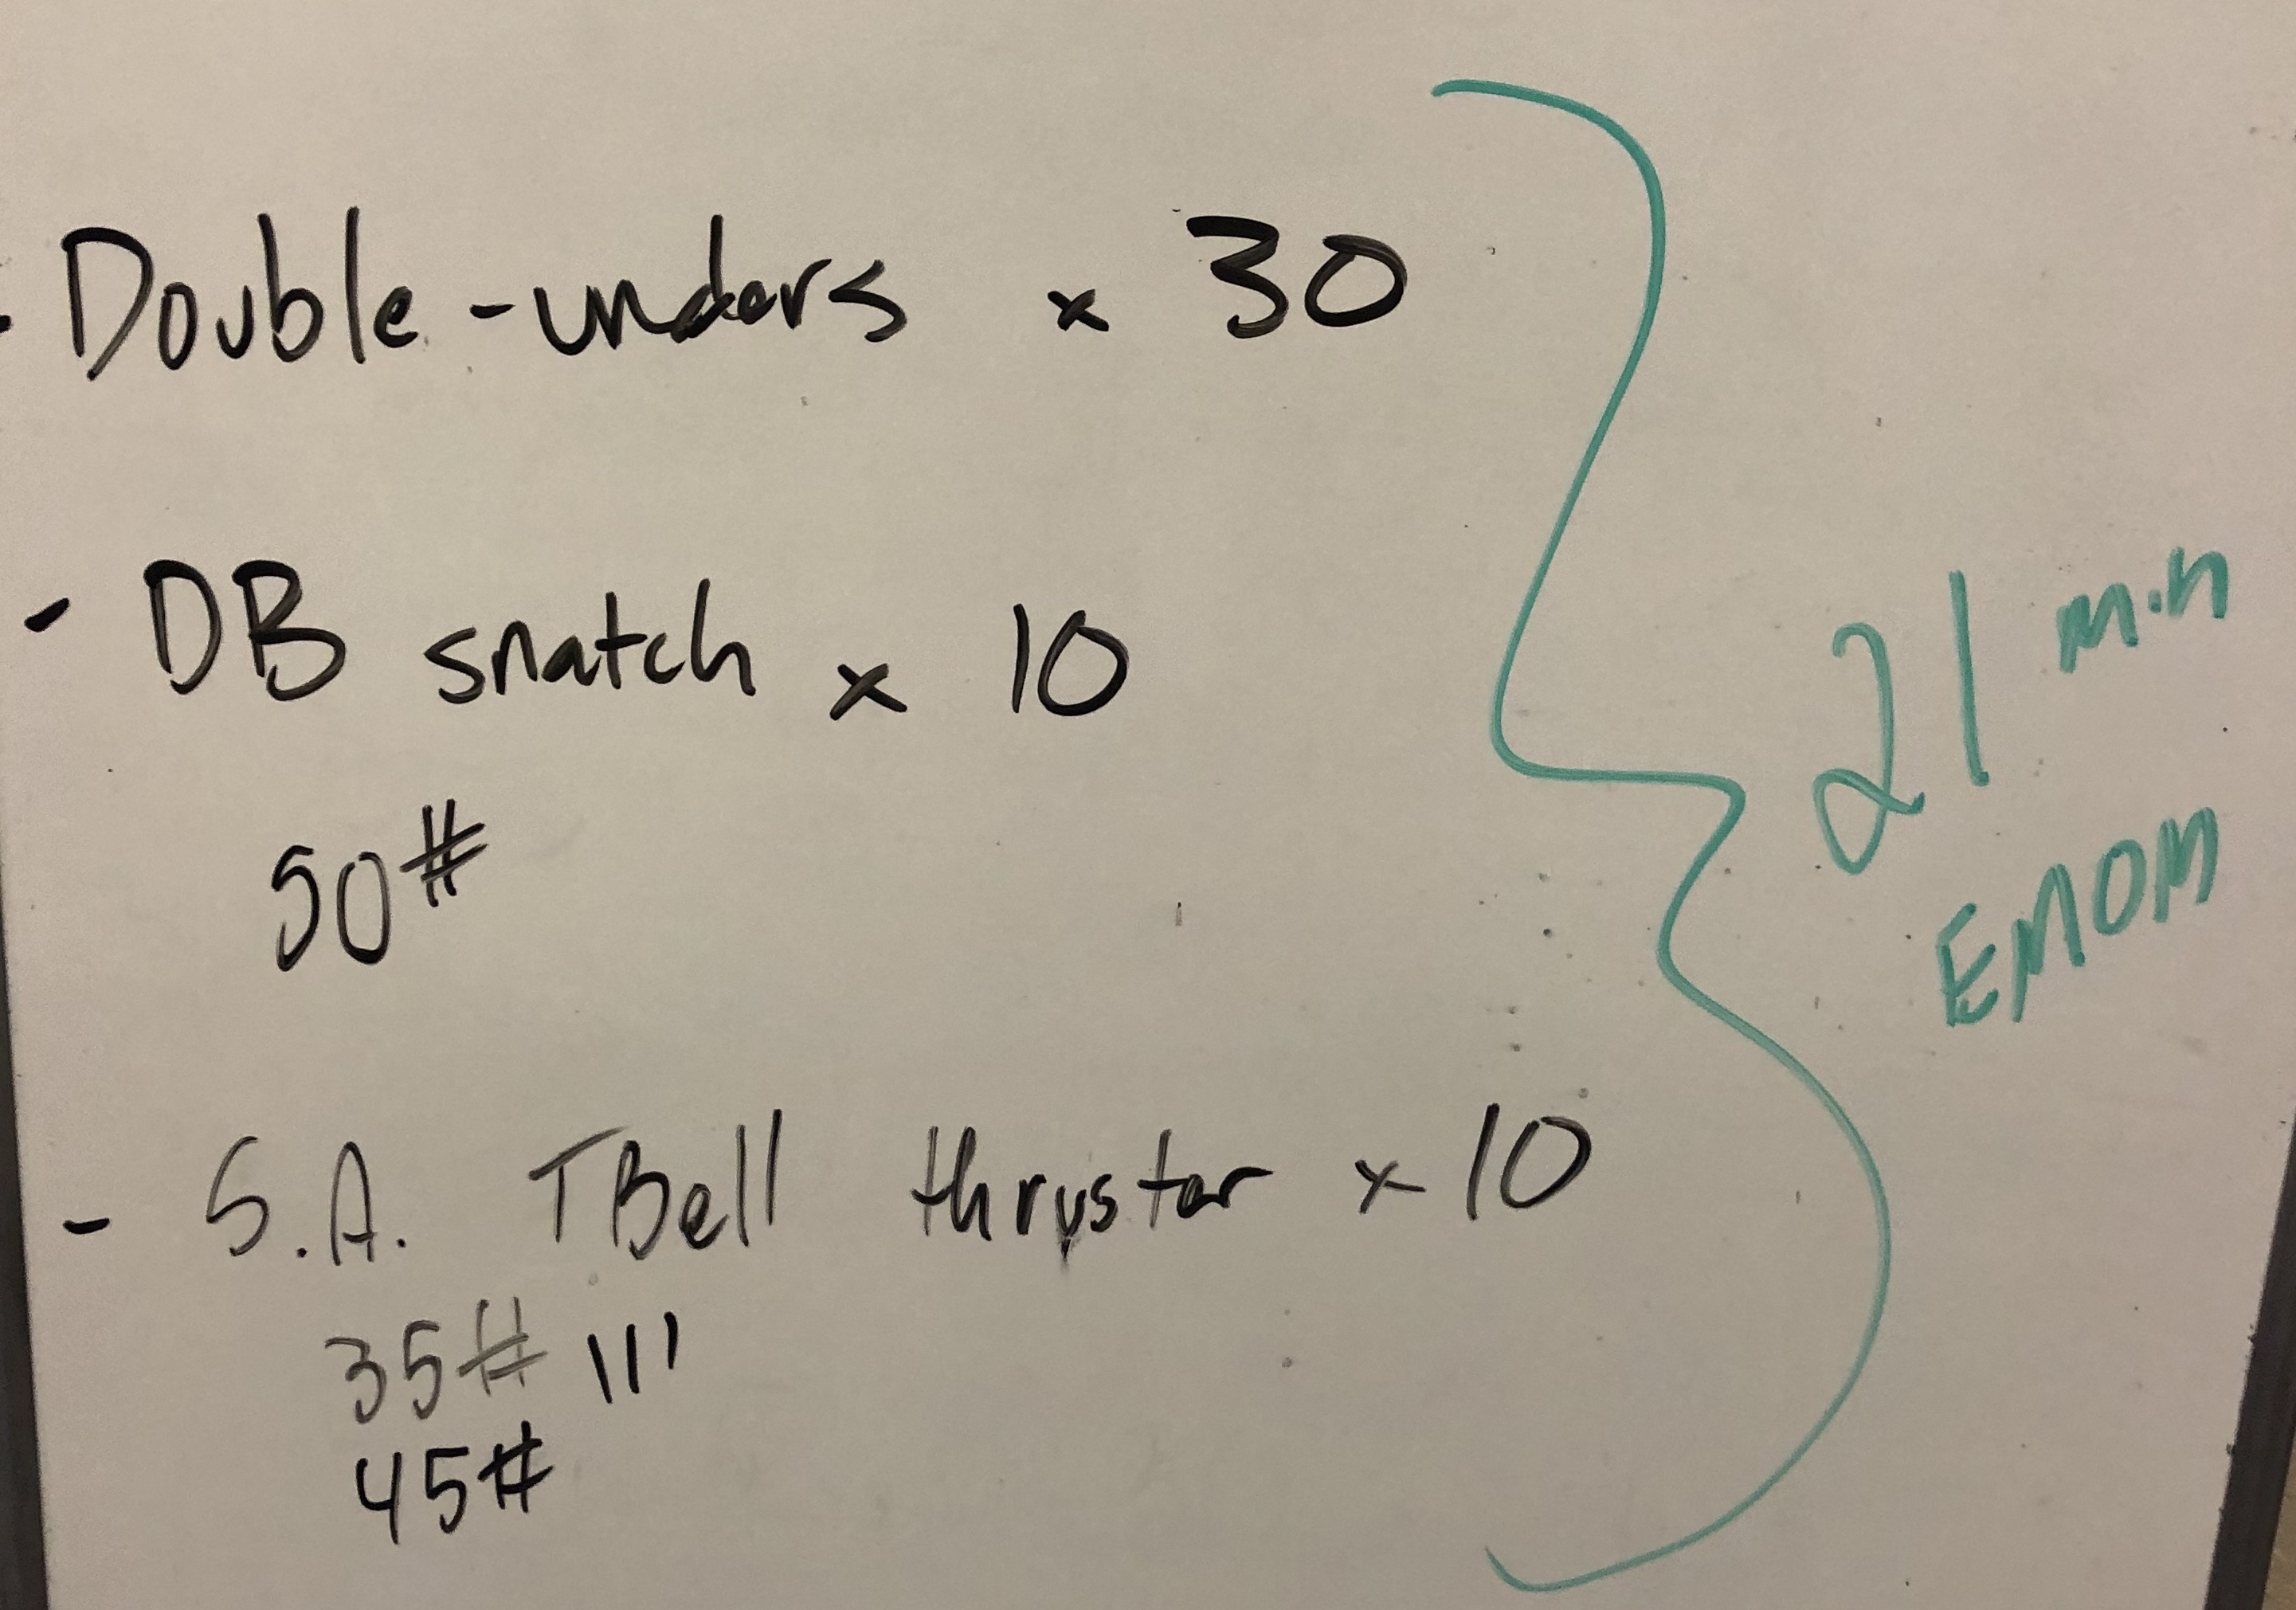 - Double-unders x 30
- DB snatch x 10
50#
- S.A. TBell thruster x 10
35# |||
45#
21 min
EMOM